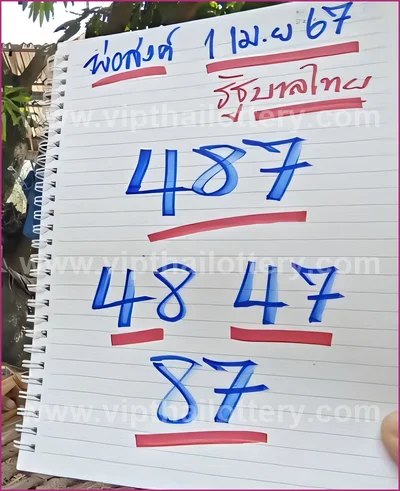 พ่อสงค์ 1 เม.ย 67
รัฐบาลไทย
www.vipthailottery.com
487
www.vipthailottery.com
48 47
87
www.vipthailottery.com